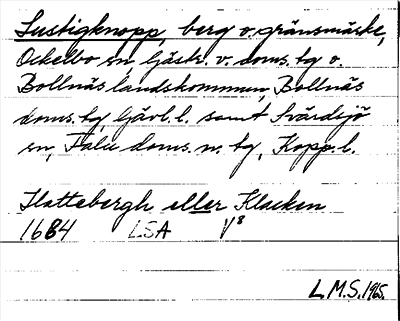 Lustigknopp, berg o. gränsmärke,
Ockelbo sn, Gästr. v. doms. tg o.
Bollnäs landskommun, Bollnäs
doms. tg, Gävl. l. samt Svärdsjö
sn, Falu doms. n. tg, Kopp. l.
Klattebergh eller Klacken
1684 LSA V8
L.M.S. 1965.